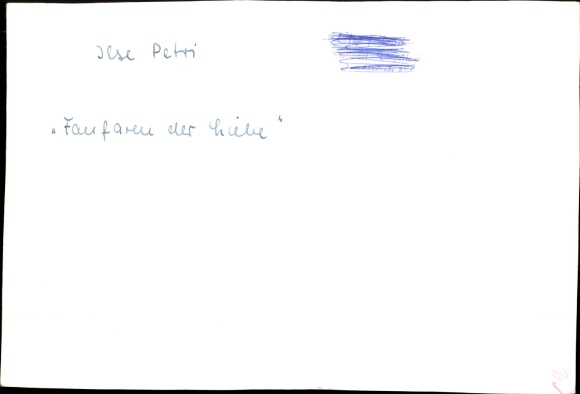 Ilse Petri
"Fanfaren der Liebe"